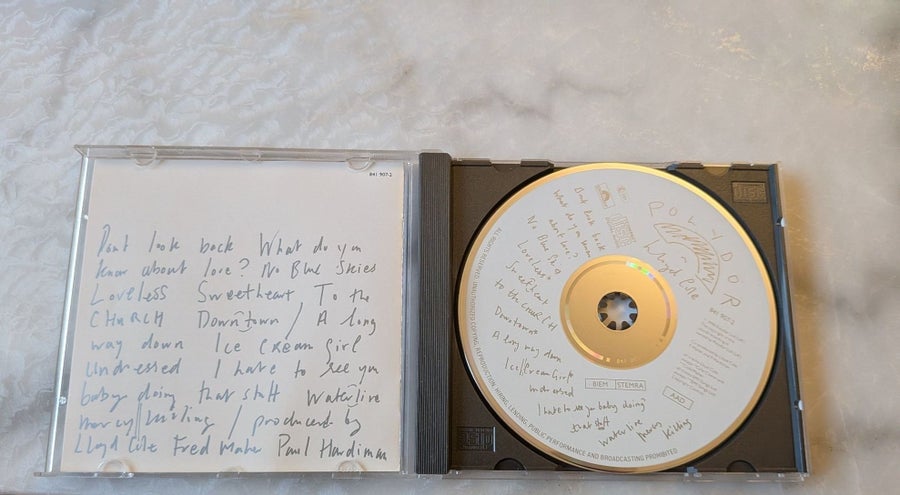 841 907-2
Dont look back What do you
know about love? No Blue Skies
Loveless Sweetheart To the
CHURCH Downtown / A long
way down Ice Cream Girl
Undressed I hate to see you
baby doing that stuff Waterline
mercy killing / produced by
Lloyd Cole Fred Maher Paul Hardiman
POLYDOR
Lloyd Cole
841 907-2
Dont look back
What do you know
about love?
No Blue Skies
Loveless
Sweetheart
to the CHURCH
Downtown
A long way down
Ice Cream Girl
undressed
I hate to see you baby doing
that stuff
waterline
Mercy Killing
BIEM STEMRA
AAD
ALL RIGHTS RESERVED. UNAUTHORIZED COPYING, REPRODUCTION, HIRING, LENDING, PUBLIC PERFORMANCE AND BROADCASTING PROHIBITED